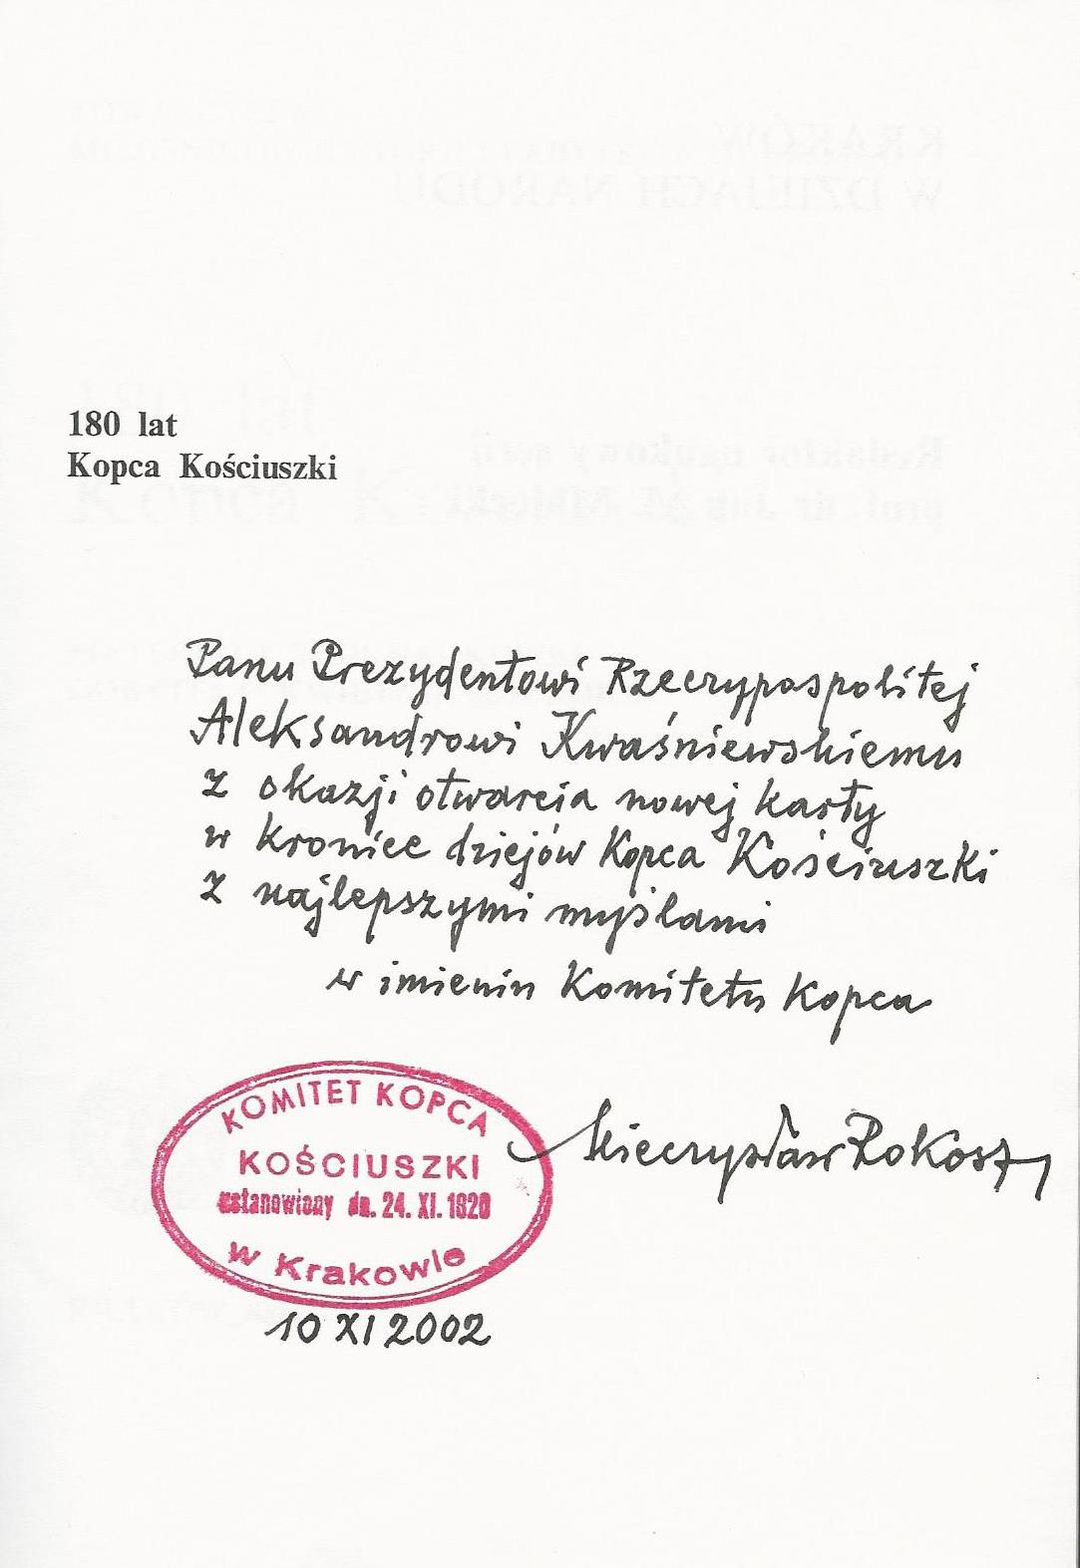 180 lat
Kopca Kościuszki
Panu Prezydentowi Rzeczypospolitej
Aleksandrowi Kwaśniewskiemu
z okazji otwarcia nowej karty
w kronice dziejów Kopca Kościuszki
z najlepszymi myślami
w imieniu Komitetu Kopca
Mieczysław Rokosz
KOMITET KOPCA
KOŚCIUSZKI
ustanowiony dn. 24. XI. 1820
w Krakowie
10 XI 2002